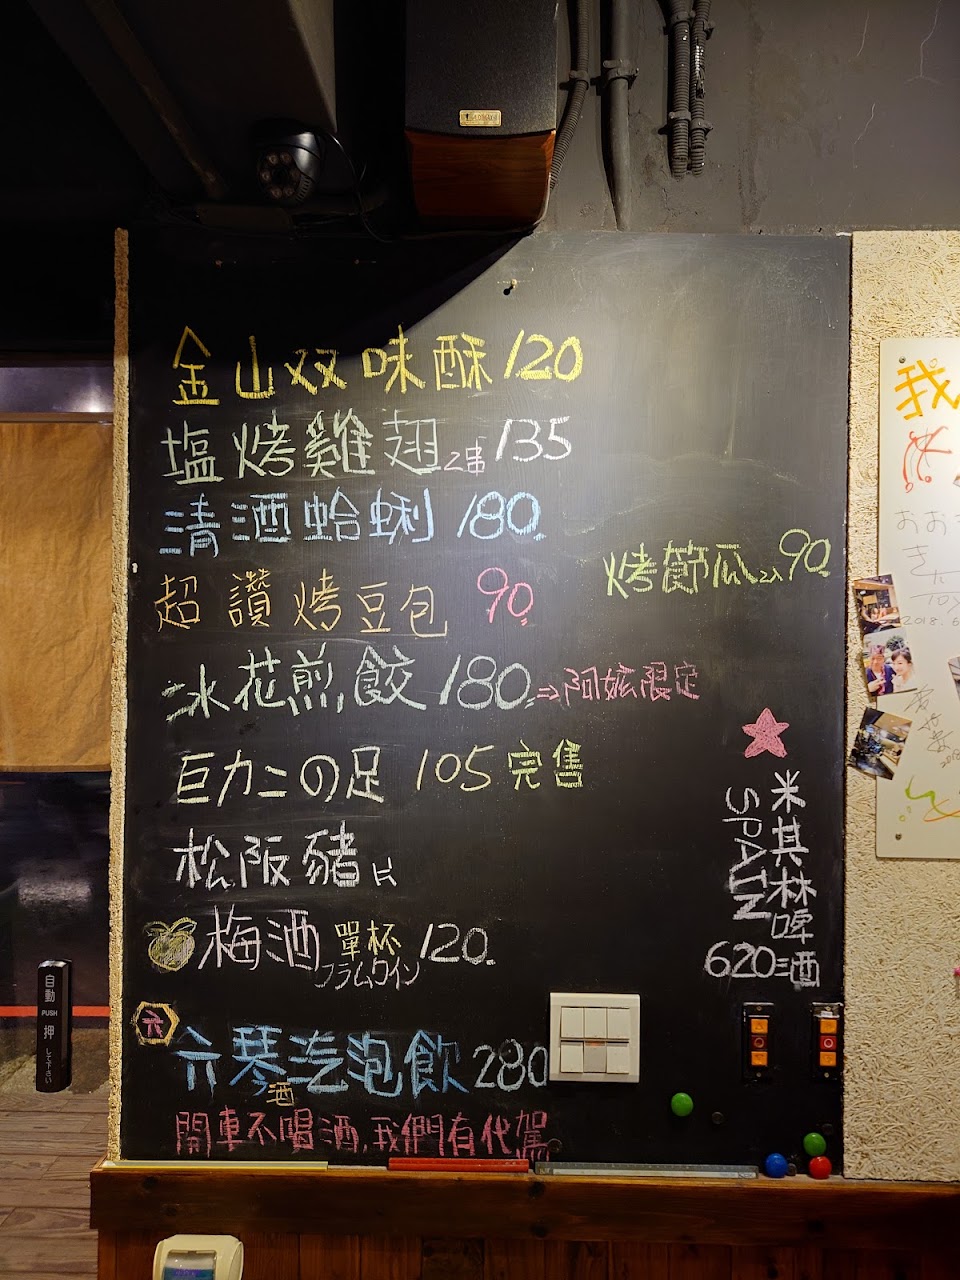 金山双味酥120
塩烤雞翅2串135
清酒蛤蜊180.
烤節瓜2入90.
超讚烤豆包 90.
冰花煎餃180.⇒阿嬤限定
巨力ニの足 105 完售
松阪豬
梅酒單杯120.
プラムワイン
米其林啤酒
SPAIN
620
六
六琴汽泡飲280
酒
開車不喝酒,我們有代駕
自動
PUSH
押
して下さい
我
おお
きに
2018.6